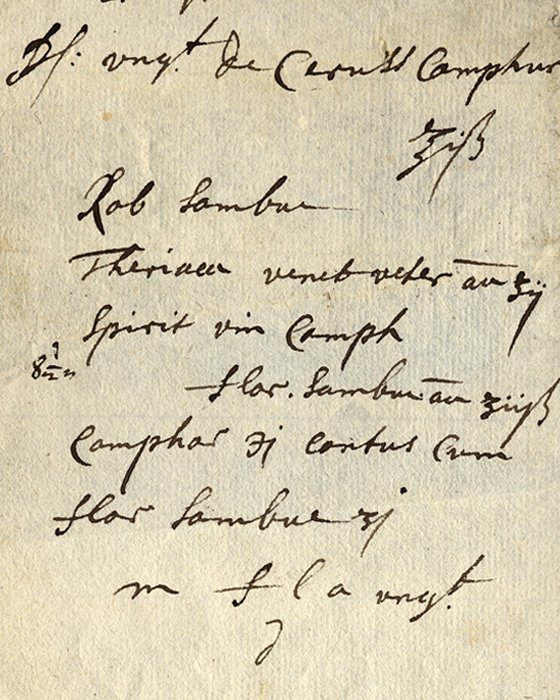 ℞: ungt de Ceruss Camphor
℥iß
Rob Sambuc
Theriaca venet veter an̄ ʒij
Spirit vin Camph
flor. Sambuc an̄ ʒiijß
Camphor ʒj contus Cum
flor Sambuc ʒj
m f l a ungt